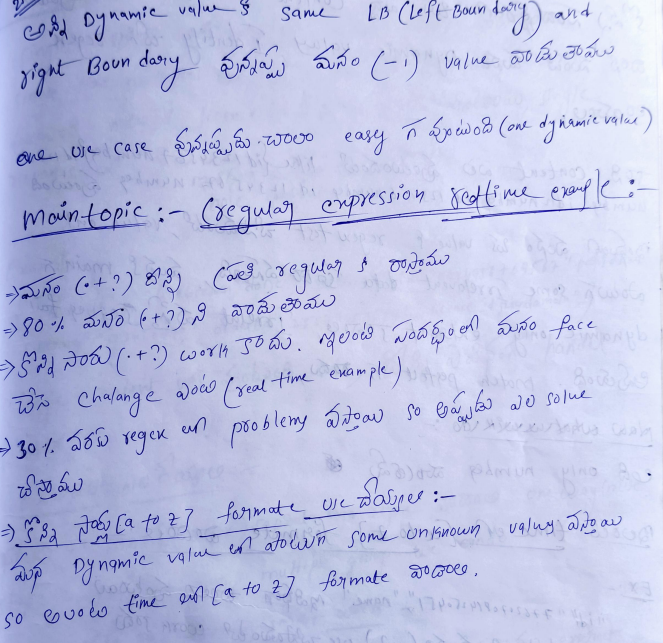 అన్ని Dynamic value కి same LB (Left Boundary) and
right Boundary వున్నప్పు మనం (-1) value వాడుతాము
one use case వున్నప్పుడు చాలా easy గ వుంటుంది (one dynamic value)
main topic :- (regular expression realtime example :-
→ మనం (.+?) దీన్ని ప్రతి regular కి రాస్తాము
→ 80% మనం (.+?) ని వాడుతాము
→ కొన్ని సార్లు (.+?) work కాదు. ఇలాంటి సందర్భంలో మనం face
చేసే chalange ఏంటి (real time example)
→ 30% వరకు regex లో problems వస్తాయి so అప్పుడు ఎలా solve
చేస్తాము
→ కొన్ని సార్లు [a to z] formate use చేయ్యాలి :-
మన Dynamic value లో some unknown values వస్తాయి
so అలాంటి time లో [a to z] formate వాడాలి.